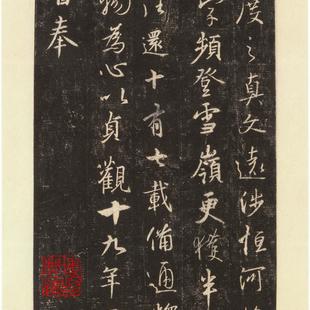 度之真文遠涉恒河
字頻登雪嶺更獲半
還十有七載備通釋
物為心以貞觀十九年
日奉